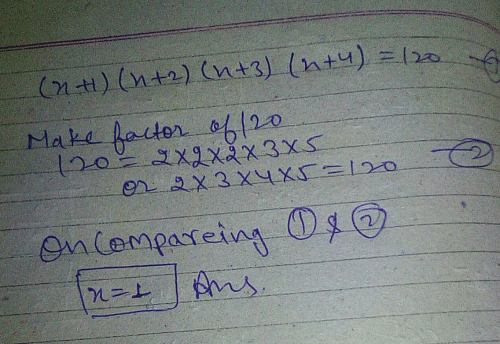 (n+1) (n+2) (n+3) (n+4) = 120 —①
Make factor of 120
120 = 2×2×2×3×5
or 2×3×4×5=120 —②
On Compareing ① & ②
n=1 Ans.